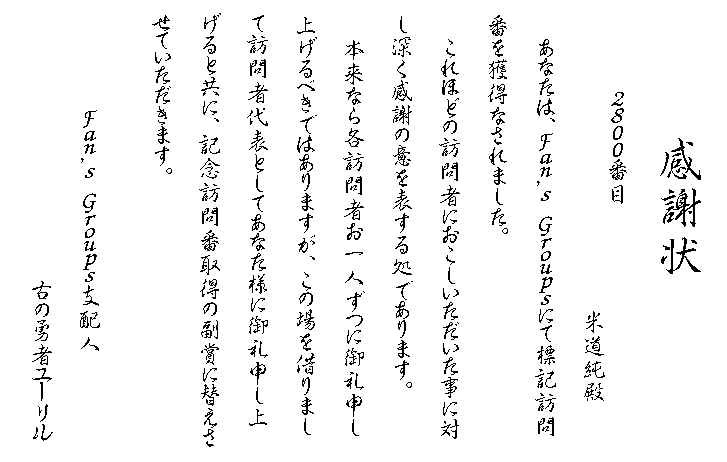 感謝状
2800番目
米道純殿
あなたは、Fan's Groupsにて標記訪問
番を獲得なされました。
これほどの訪問者におこしいただいた事に対
し深く感謝の意を表する処であります。
本来なら各訪問者お一人ずつに御礼申し
上げるべきではありますが、この場を借りまし
て訪問者代表としてあなた様に御礼申し上
げると共に、記念訪問番取得の副賞に替えさ
せていただきます。
Fan's Groups支配人
古の勇者ユーリル